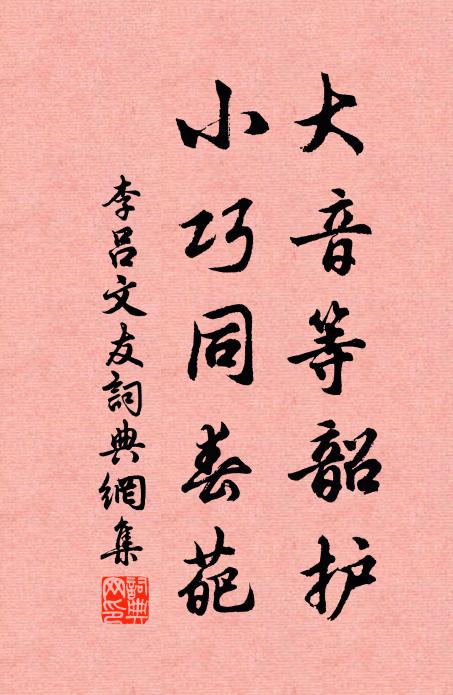 大音等韶护
小巧同春葩
李吕文友詞典網集
詞典网印